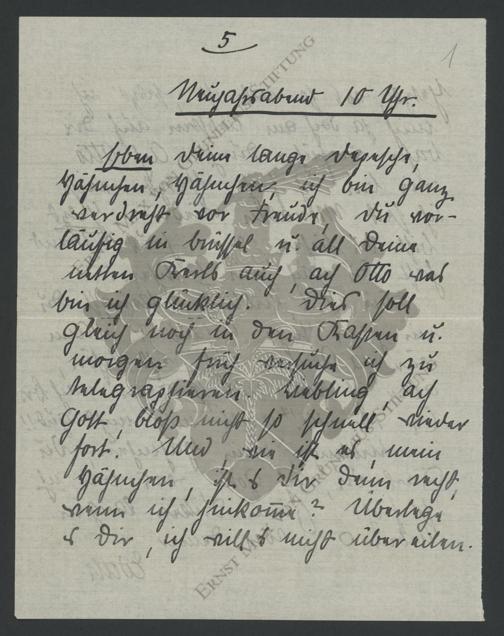 5
1
Neujahrsabend 10 Uhr.
Eben Deine lange Depesche,
Hähnchen, Hähnchen, ich bin ganz
verdreht vor Freude, Du vor-
läufig in Brüssel u. all Deine
netten Kerls auch, ach Otto was
bin ich glücklich. Dies soll
gleich noch in den Kasten u.
morgen früh versuche ich zu
telegraphieren. Liebling ach
Gott, bloß nicht so schnell wieder
fort. Und wie ist es, mein
Hähnchen, ist's Dir denn recht,
wenn ich hinkomme? Überlege
s Dir, ich will's nicht übereilen.